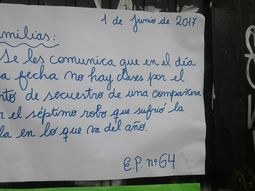 1 de Junio de 2017
amilias:
Se les comunica que en el día
a fecha no hay clases por el
nto de secuestro de una compañera
r el séptimo robo que sufrió la
la en lo que va del año.
E.P. nº 64